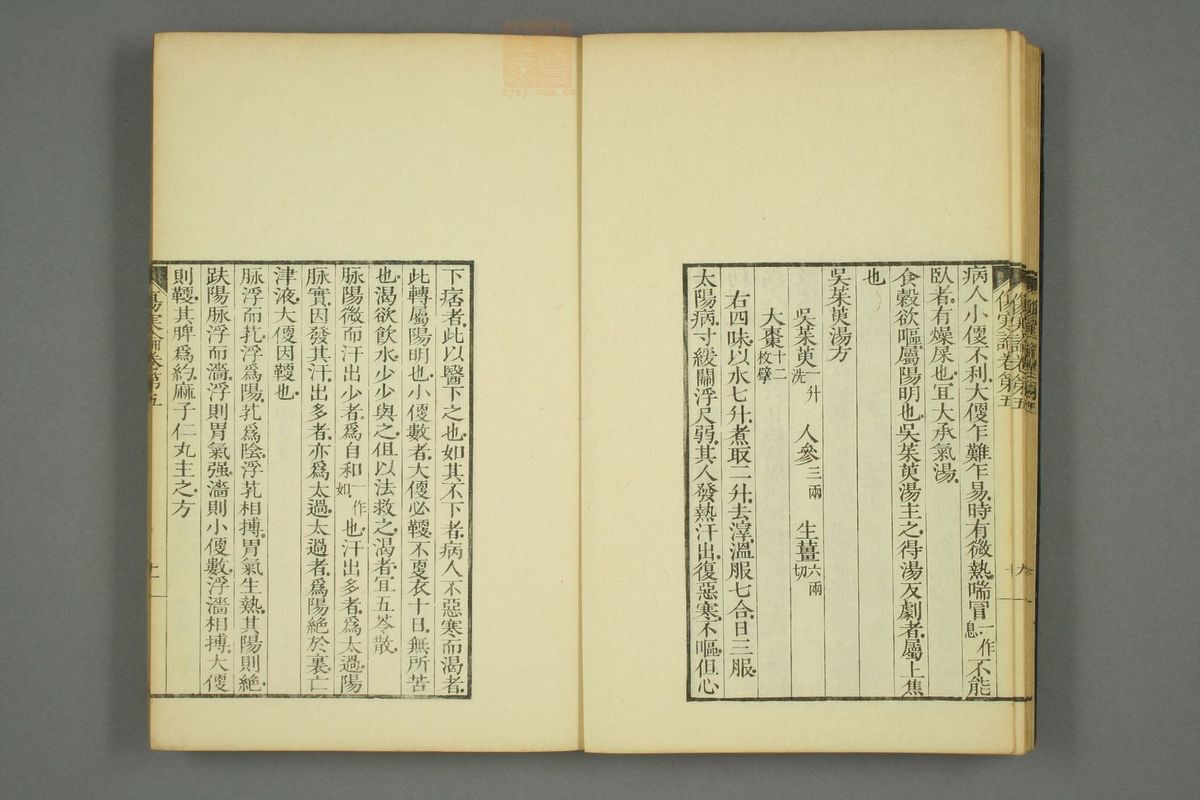 病人小便不利大便乍難乍易時有微熱喘冒一作息不能
臥者有燥屎也宜大承氣湯
食穀欲嘔屬陽明也吳茱萸湯主之得湯反劇者屬上焦
也
吳茱萸湯方
吳茱萸一升洗 人參三兩 生薑六兩切
大棗十二枚擘
右四味以水七升煮取二升去滓溫服七合日三服
太陽病寸緩關浮尺弱其人發熱汗出復惡寒不嘔但心
下痞者此以醫下之也如其不下者病人不惡寒而渴者
此轉屬陽明也小便數者大便必鞕不更衣十日無所苦
也渴欲飲水少少與之但以法救之渴者宜五苓散
脉陽微而汗出少者爲自和一作如也汗出多者爲太過陽
脉實因發其汗出多者亦爲太過太過者爲陽絕於裏亡
津液大便因鞕也
脉浮而芤浮爲陽芤爲陰浮芤相搏胃氣生熱其陽則絕
趺陽脉浮而濇浮則胃氣强濇則小便數浮濇相搏大便
則鞕其脾爲約麻子仁丸主之方
傷寒論卷第五
十一
傷寒論卷第五
zysj.com.cn